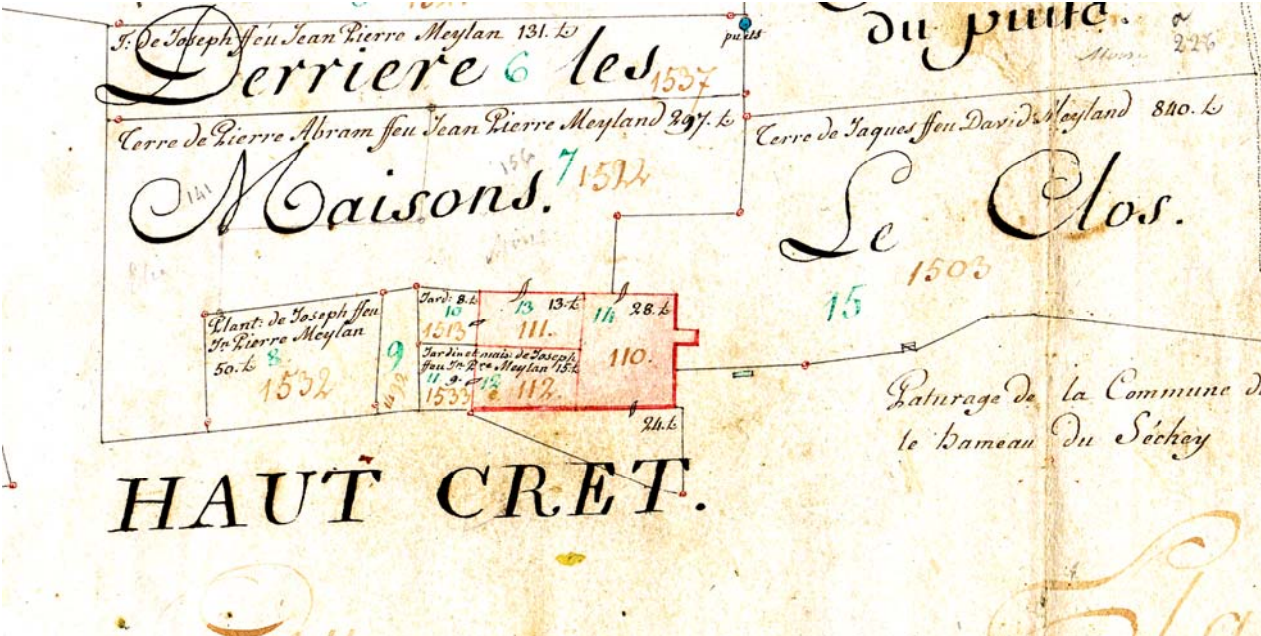 du puits.
228
T: de Joseph ffeu Jean Pierre Meylan 131. t
puits
Derriere 6 les
1537
Terre de Pierre Abram ffeu Jean Pierre Meyland 297. t
Terre de Jaques ffeu David Meyland 840. t
141
156
7
1522
Maisons.
Le Clos.
1503
15
Plant: de Joseph ffeu
Jn Pierre Meylan
50. t 8
1532
9
Jard: 8. t
10
1513
13 13. t
111.
14 28. t
110.
Jardin et mais: de Joseph
ffeu Jn Pre Meylan 15. t
11 9. 12
1533
112.
24. t
Paturage de la Commune
le hameau du Séchey
HAUT CRET.